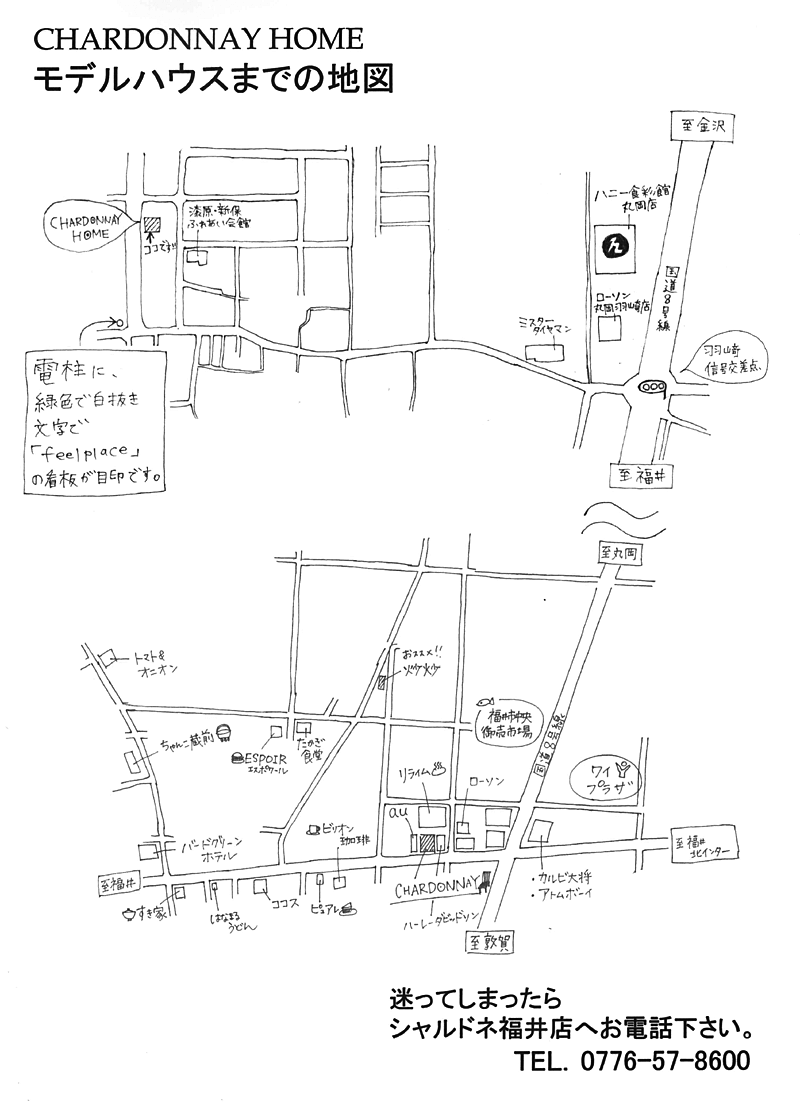 CHARDONNAY HOME
モデルハウスまでの地図
至金沢
ハニー食彩館
丸岡店
CHARDONNAY
HOME
ココです!!
漆原・新保
ふれあい会館
国道8号線
ローソン
丸岡羽崎店
ミスター
ダイヤマン
羽崎
信号交差点
電柱に、
緑色で白抜き
文字で
「feel place」
の看板が目印です。
至福井
至丸岡
トマト&
オニオン
おススメ!!
火ケ火ケ
福井中央
卸売市場
国道8号線
ちゃんこ蔵前
ESPOIR
エスポワール
たかぎ
食堂
リライム
ローソン
ワイ
プラザ
au
ビリオン
珈琲
バードグリーン
ホテル
至福井
北インター
至福井
CHARDONNAY
・カルビ大将
・アトムボーイ
すき家
はなまる
うどん
ココス
ピュアレ
ハーレーダビッドソン
至敦賀
迷ってしまったら
シャルドネ福井店へお電話下さい。
TEL. 0776-57-8600